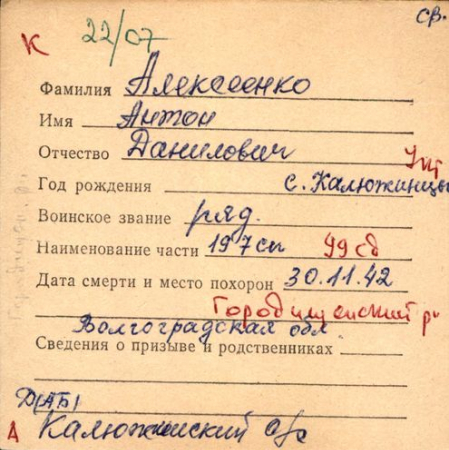 св.
К 22/07
Фамилия Алексеенко
Имя Антон
Отчество Данилович
Год рождения с. Калюжинцы
Воинское звание ряд.
Наименование части 197сп 99 сд
Дата смерти и место похорон 30.11.42
Городищенский р
Волгоградская обл
Сведения о призыве и родственниках
Д(АБ)
А Калюжинский с/с